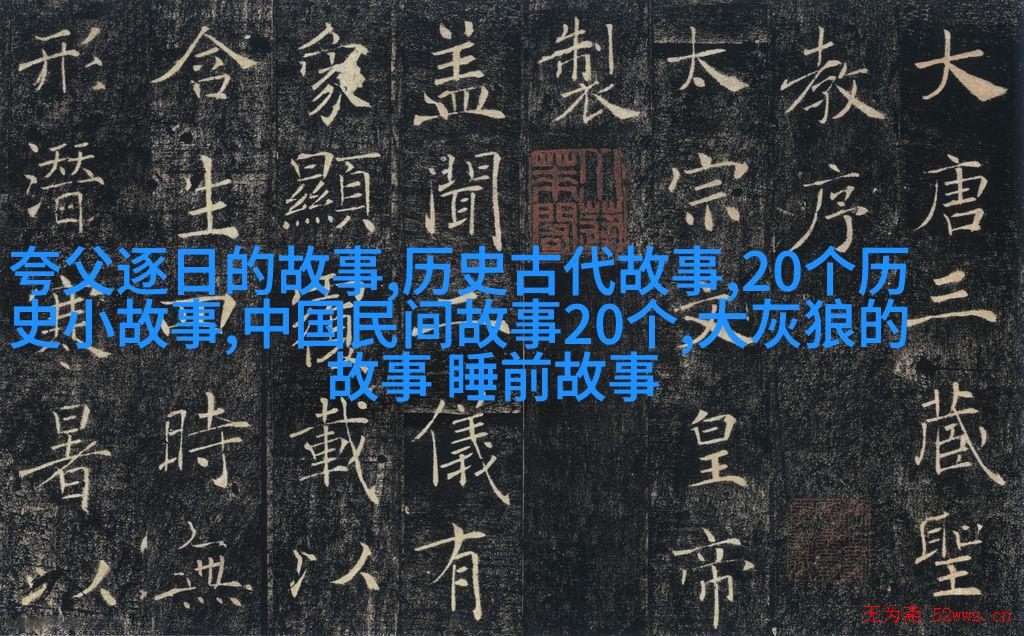 夸父逐日的故事,历史古代故事,20个历
史小故事,中国民间故事20个,大灰狼的
故事 睡前故事
大唐三藏聖
教序
太宗文皇帝
製
盖聞二儀有
象顯覆載以
含生四時無
形潛寒暑以
无为斋 52wwz.cn